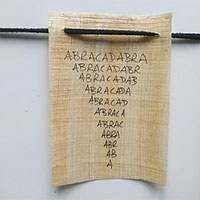 ABRACADABRA
ABRACADABR
ABRACADAB
ABRACADA
ABRACAD
ABRACA
ABRAC
ABRA
ABR
AB
A